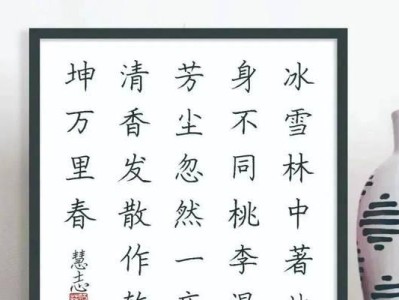 冰雪林中著
身不同桃李
芳尘忽然一
清香发散作
坤万里春
慧志